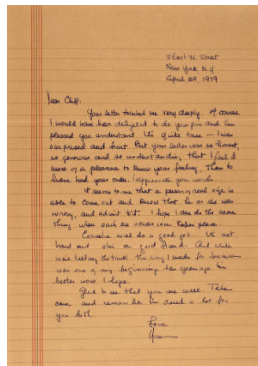 8 East 96 Street
New York, N.Y.
April 28, 1979
Dear Cliff:
Your letter touched me very deeply. Of course
I would have been delighted to do your pin and I'm
pleased you understand. It's quite true - I was
surprised and hurt. But your letter was so honest,
so generous and so understanding, that I feel it
more of a pleasure to know your feeling, than to
have had your order. I appreciate your words.
It seems to me that a person of real size is
able to come out and know that he or she was
wrong, and admit it. I hope I can do the same
thing when such an occasion takes place.
will do a good job. It's not
hard and she is a good friend. And while
we're the truth, the ring I made for
was one of my beginning ten years ago. I'm
better now I hope.
Glad to see that you are well. Take
care and remember I've cared a lot for
you both.
Love